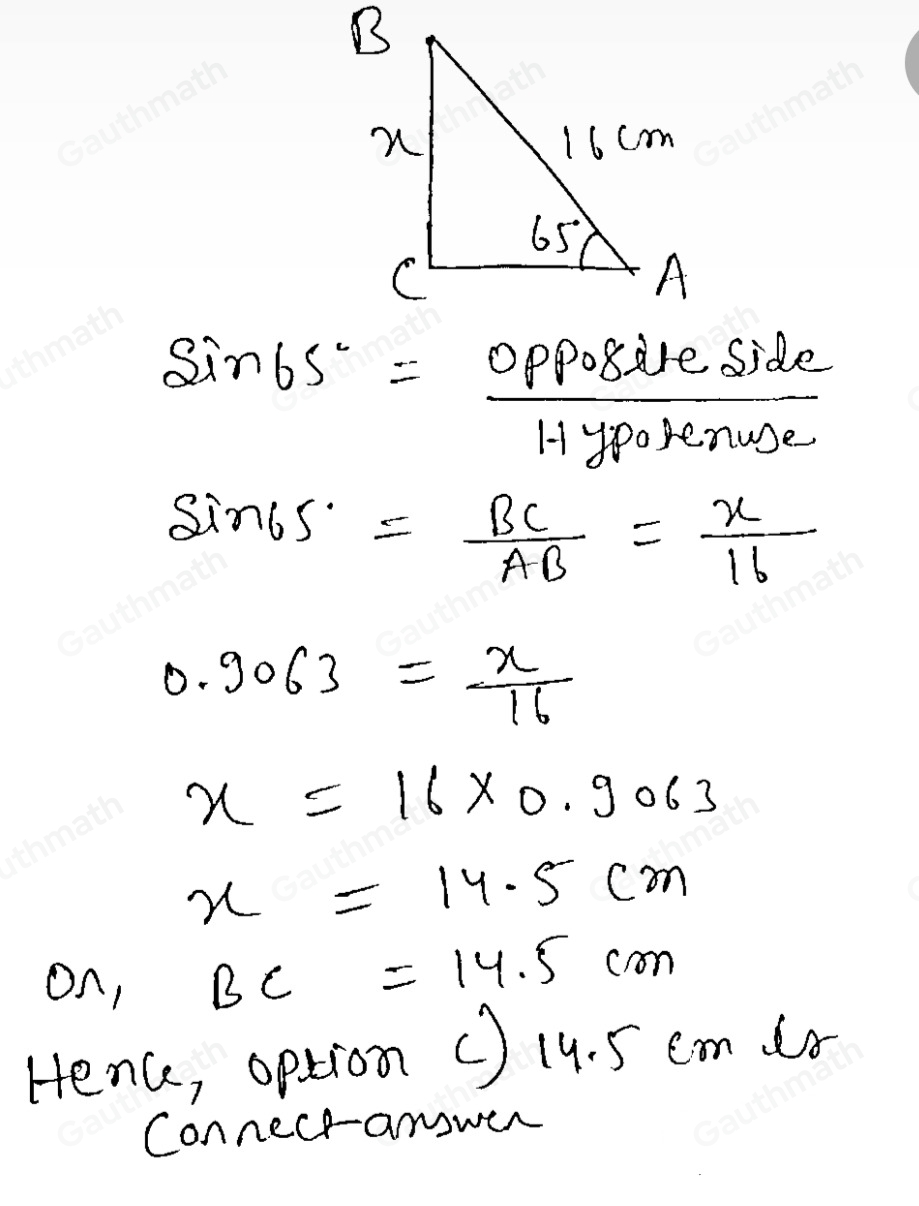 B
x
16 cm
65°
C
A
Sin65° = Opposite Side / Hypotenuse
Sin65° = BC / AB = x / 16
0.9063 = x / 16
x = 16 × 0.9063
x = 14.5 cm
Or, BC = 14.5 cm
Hence, option C) 14.5 cm is
Correct answer
Gauthmath